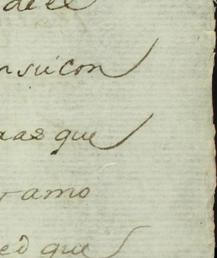 de el
n su con
aas que
ramo
ed que